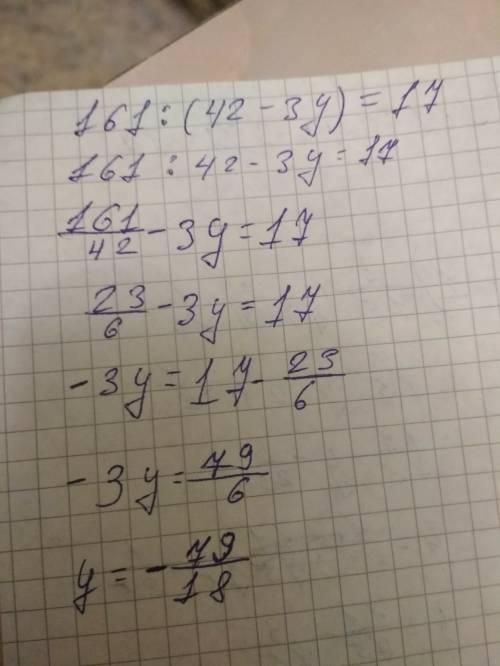 161 : (42 - 3y) = 17
161 : 42 - 3y = 17
161/42 - 3y = 17
23/6 - 3y = 17
-3y = 17 - 23/6
-3y = 79/6
y = -79/18